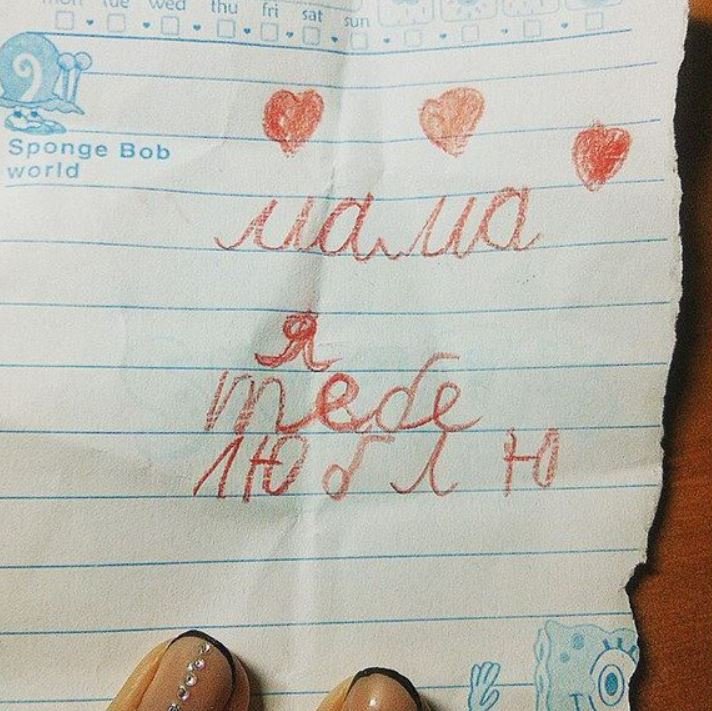 mon tue wed thu fri sat sun
Sponge Bob
world
мама
я
тебе
люблю